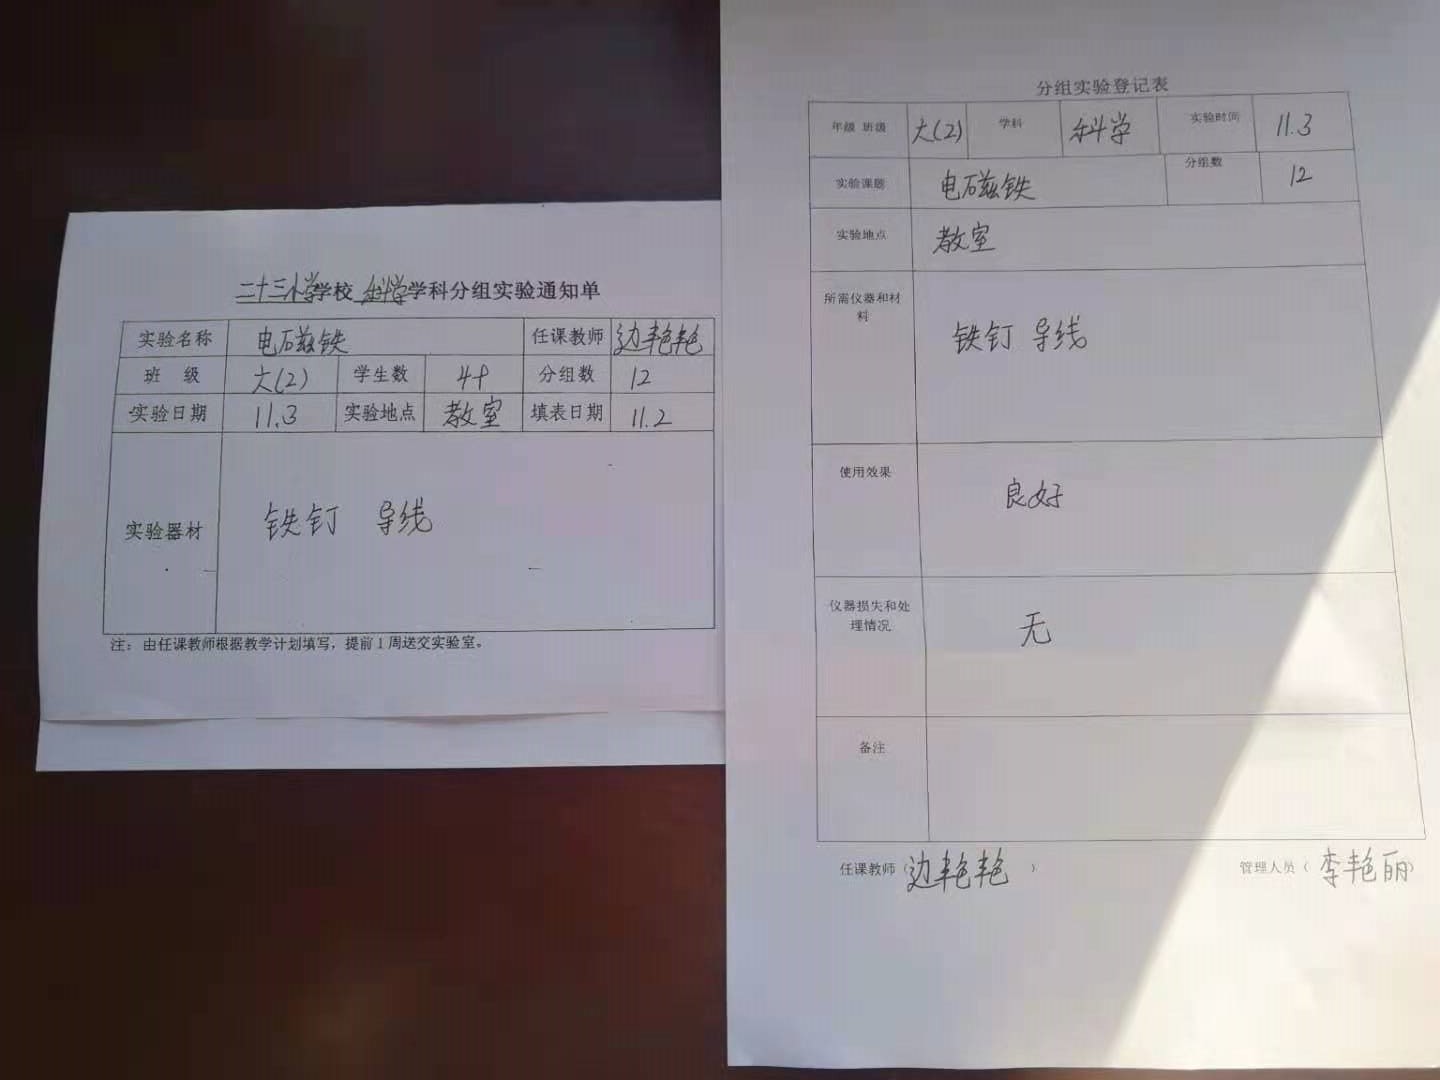 二十三小学学校 科学学科分组实验通知单
实验名称 电磁铁 任课教师 边艳艳
班 级 六(2) 学生数 分组数 12
实验日期 11.3 实验地点 教室 填表日期 11.2
实验器材 铁钉 导线
注：由任课教师根据教学计划填写，提前1周送交实验室。
分组实验登记表
年级 班级 六(2) 学科 科学 实验时间 11.3
实验课题 电磁铁 分组数 12
实验地点 教室
所需仪器和材
料
铁钉 导线
使用效果 良好
仪器损失和处
理情况
无
备注
任课教师（边艳艳） 管理人员（李艳丽）